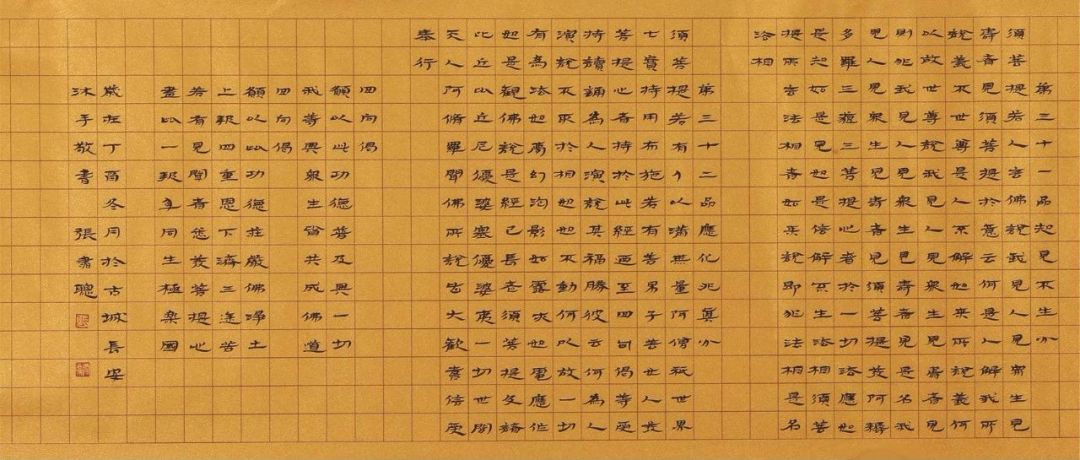 第三十一品知見不生分
須菩提若人言佛說我見人見眾生見
壽者見須菩提於意云何是人解我所
說義不世尊是人不解如來所說義何
以故世尊說我見人見眾生見壽者見
則非我見人見眾生見壽者見是名我
見人見眾生見壽者見須菩提發阿耨
多羅三藐三菩提心者於一切法應如
是知如是見如是信解不生法相須菩
提所言法相者如來說即非法相是名
法相
第三十二品應化非真分
須菩提若有人以滿無量阿僧祇世界
七寶持用布施若有善男子善女人發
菩提心者持於此經乃至四句偈等受
持讀誦為人演說其福勝彼云何為人
演說不取於相如如不動何以故一切
有為法如夢幻泡影如露亦如電應作
如是觀佛說是經已長老須菩提及諸
比丘比丘尼優婆塞優婆夷一切世間
天人阿修羅聞佛所說皆大歡喜信受
奉行
回向偈
願以此功德普及與一切
我等與眾生皆共成佛道
回向偈
願以此功德莊嚴佛淨土
上報四重恩下濟三途苦
若有見聞者悉發菩提心
盡此一報身同生極樂國
歲在丁酉冬月於古城長安
沐手敬書 張書聰